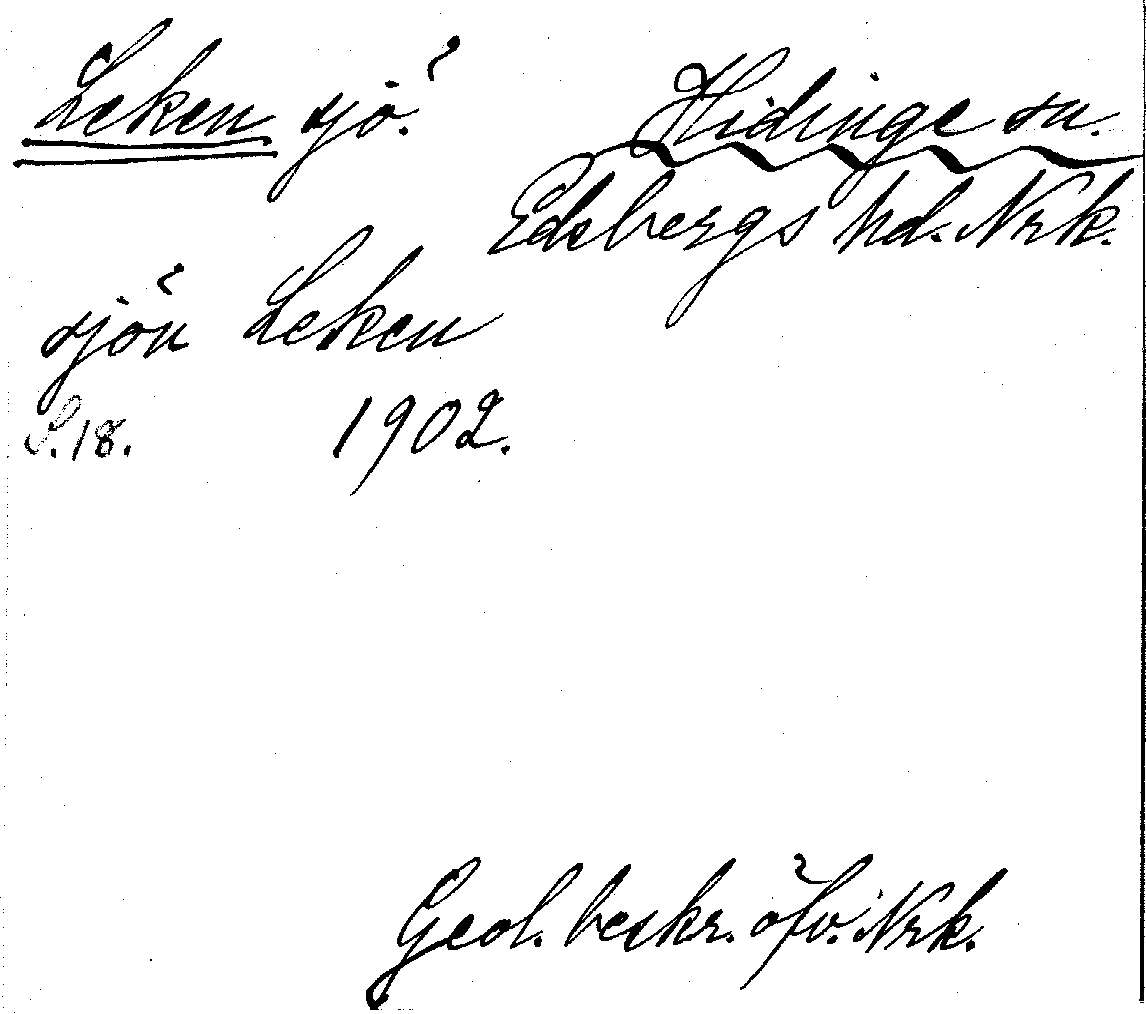 Leken sjö.
Hidinge sn.
Edsbergs hd. Nrk.
sjön Leken
S. 18. 1902.
Geol. beskr. öfv. Nrk.